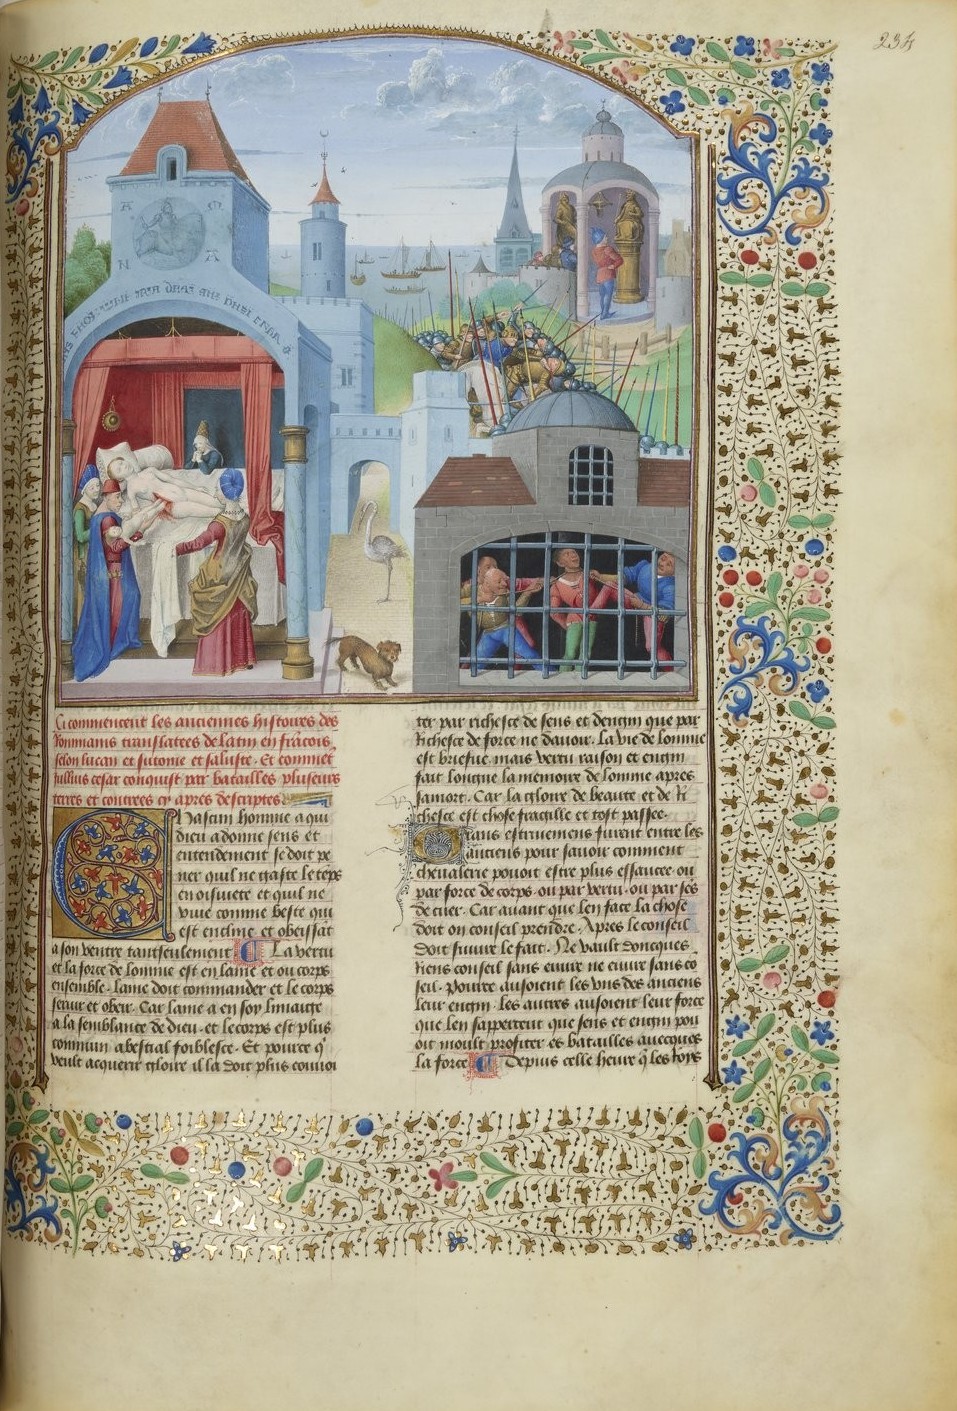 234
A M
N A
Ci commencent les anciennes histoires des
Rommains translatees de latin en francois
selon lucan et suetone et saluste · Et comment
Jullius cesar conquist par batailles pluseurs
terres et contrees cy apres descriptes
Chascun homme a qui
dieu a donne sens et
entendement se doit pe
ner quil ne gaste le teps
en oisuete et quil ne
viue comme beste qui
est encline et obeissat
a son ventre tantseulement La vertu
et la force de lomme est en lame et ou corps
ensemble · lame doit commander et le corps
seruir et obeir · Car lame a en soy limaige
a la semblance de dieu · et le corps est plus
commun a bestial foiblesce · Et pource q
veult acquerir gloire il la doit plus
ter par richesce de sens et dengin que par
Richesce de force ne dauoir · La vie de lomme
est briefue mais vertu raison et engin
fait longue la memoire de lomme apres
sa mort · Car la gloire de beaute et de Ri
chesce est chose fragille et tost passee ·
Grans estriuemens furent entre les
anciens pour sauoir comment
cheualerie pouoit estre plus essaucee · ou
par force de corps · ou par vertu · ou par ses
de cuer · Car auant que len face la chose
doit on conseil prendre · Apres le conseil
doit suiure le fait · Ne vault doncques
Riens conseil sans euure ne euure sans co
seil · Pource usoient les uns des anciens
leur engin · les autres usoient leur force
que len sappercut que sens et engin pou
oit moult prositer es batailles auecques
la force Depuis celle heure q les roys